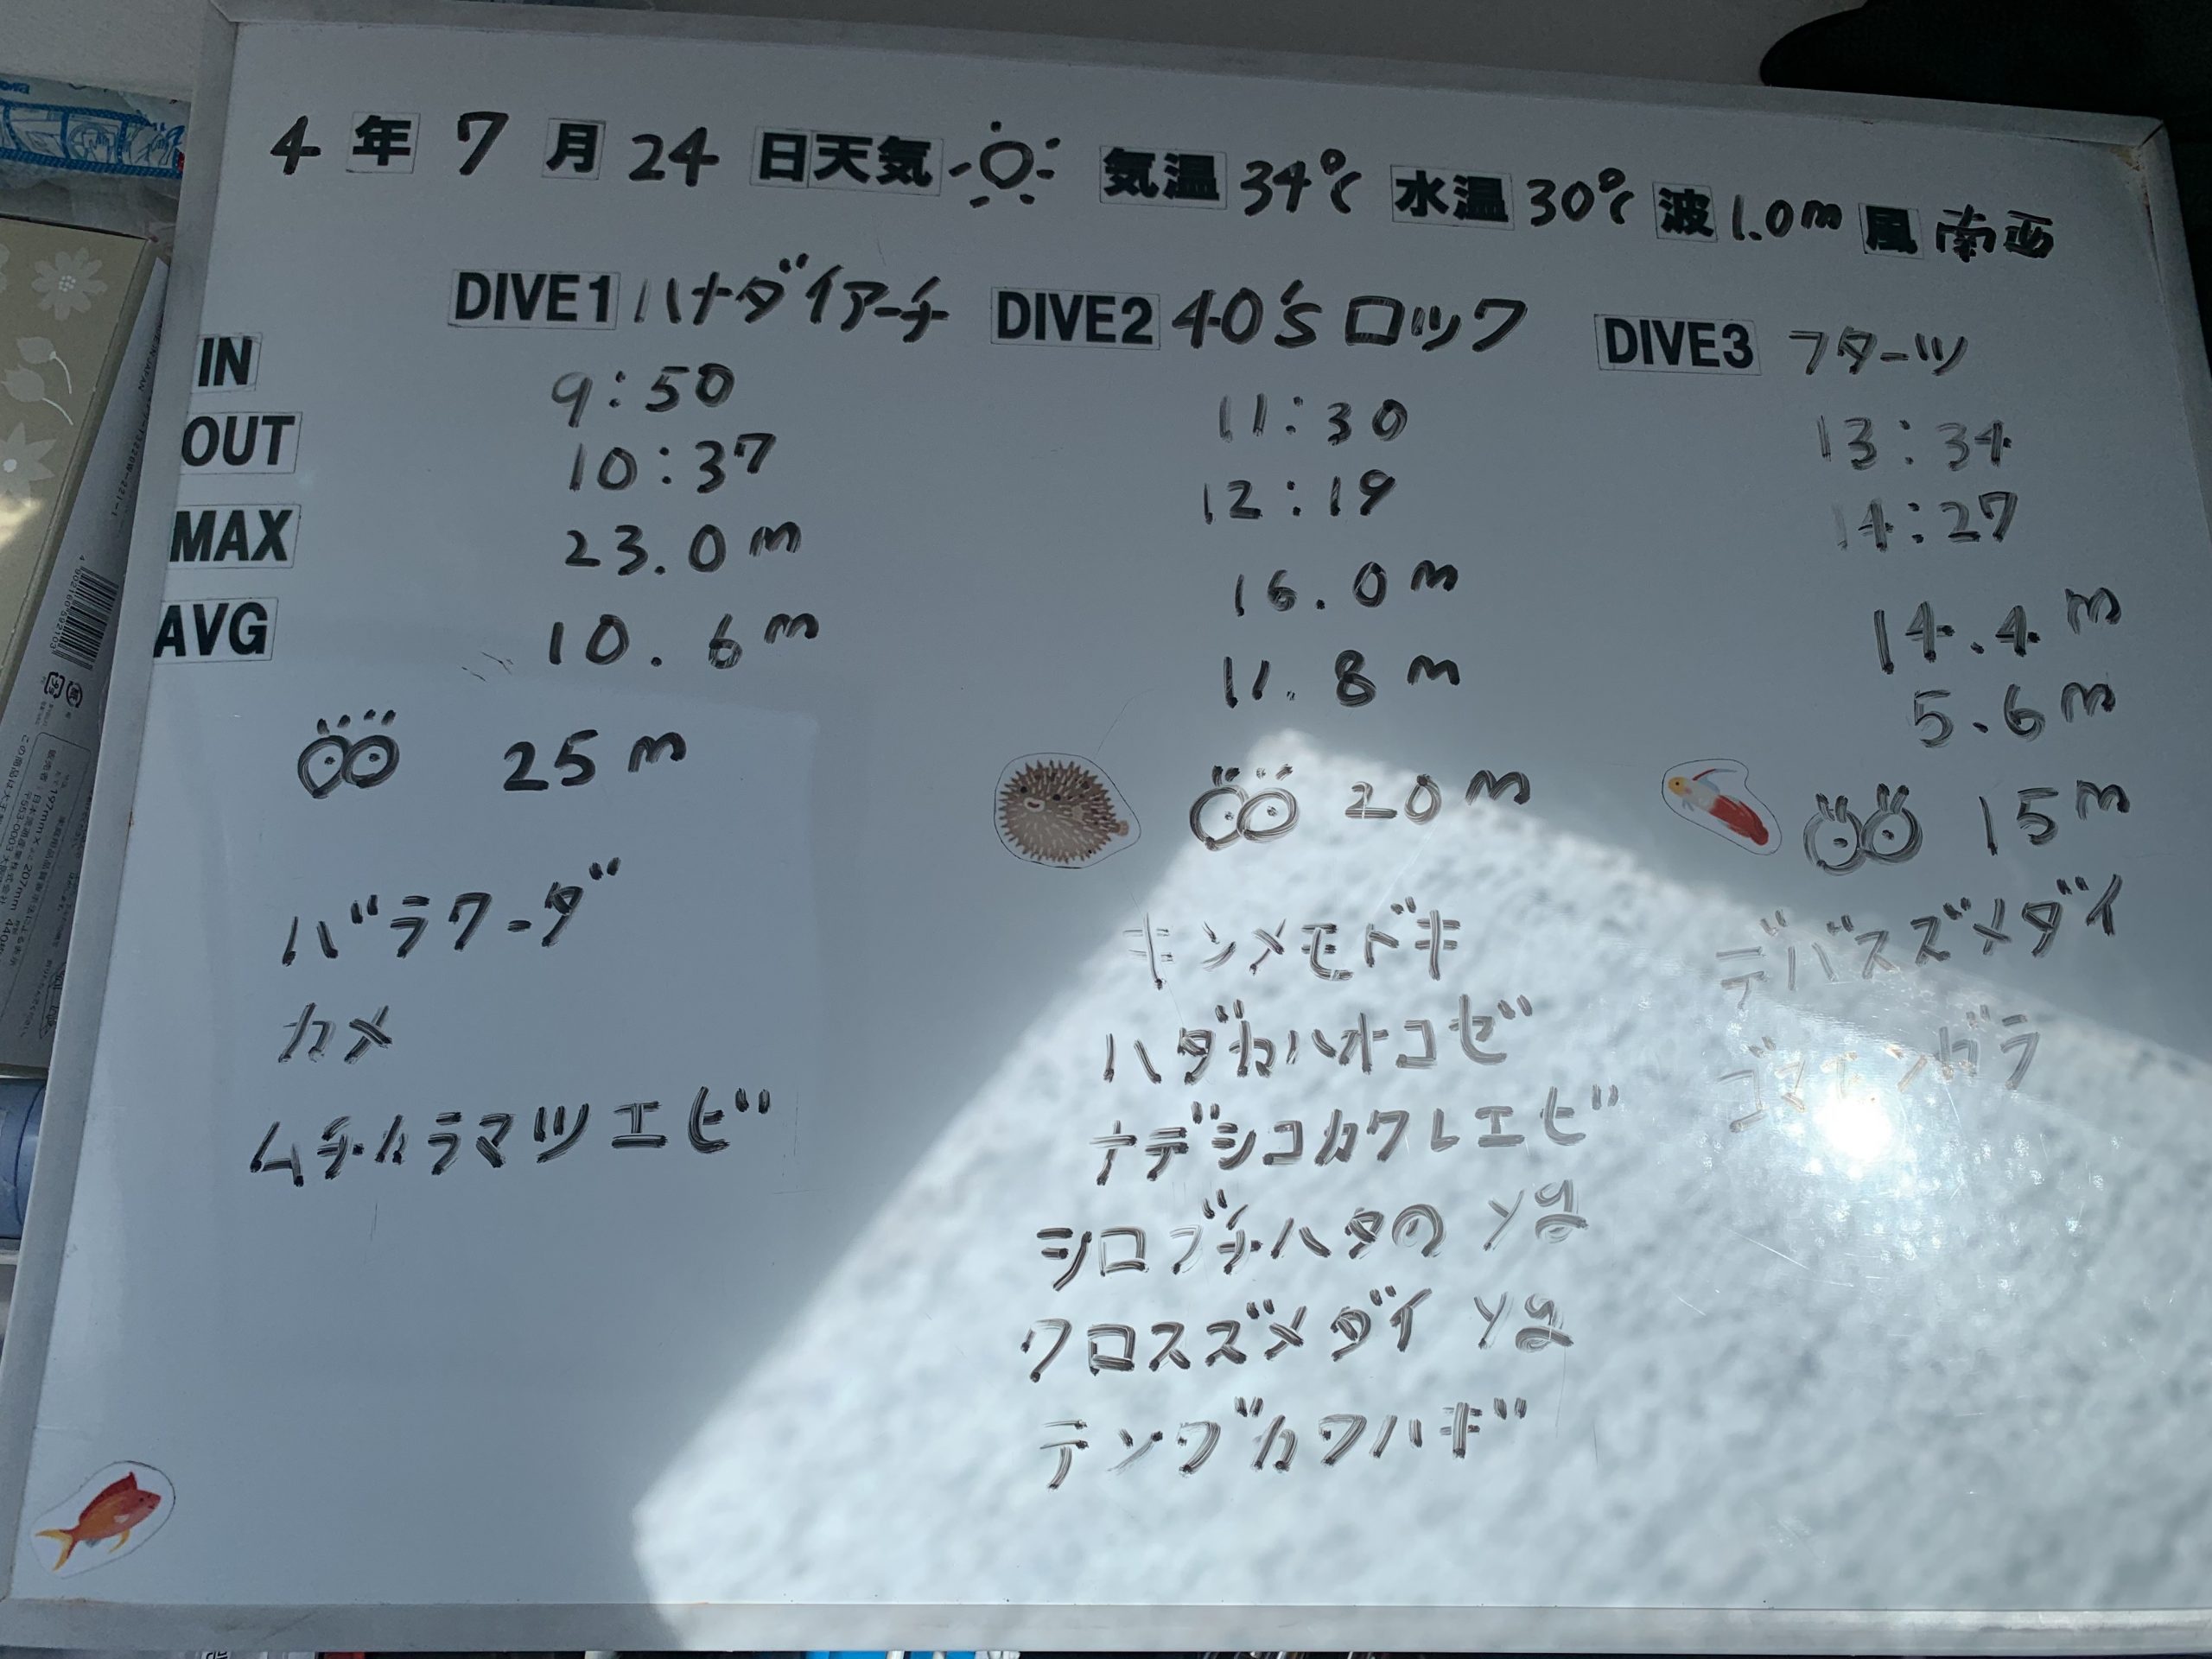 4年7月24日天気 気温34℃ 水温30℃ 波1.0m 風南西
DIVE1 ハナダイアーチ DIVE2 40's ロック DIVE3 フターツ
IN 9:50 11:30 13:34
OUT 10:37 12:19 14:27
MAX 23.0m 16.0m 14.4m
AVG 10.6m 11.8m 5.6m
25m 20m 15m
バラクーダ キンメモドキ デバスズメダイ
カメ ハダカハオコゼ ゴマモンガラ
ムチカラマツエビ ナデシコカクレエビ
シロブチハタの yg
クロスズメダイ yg
テングカワハギ